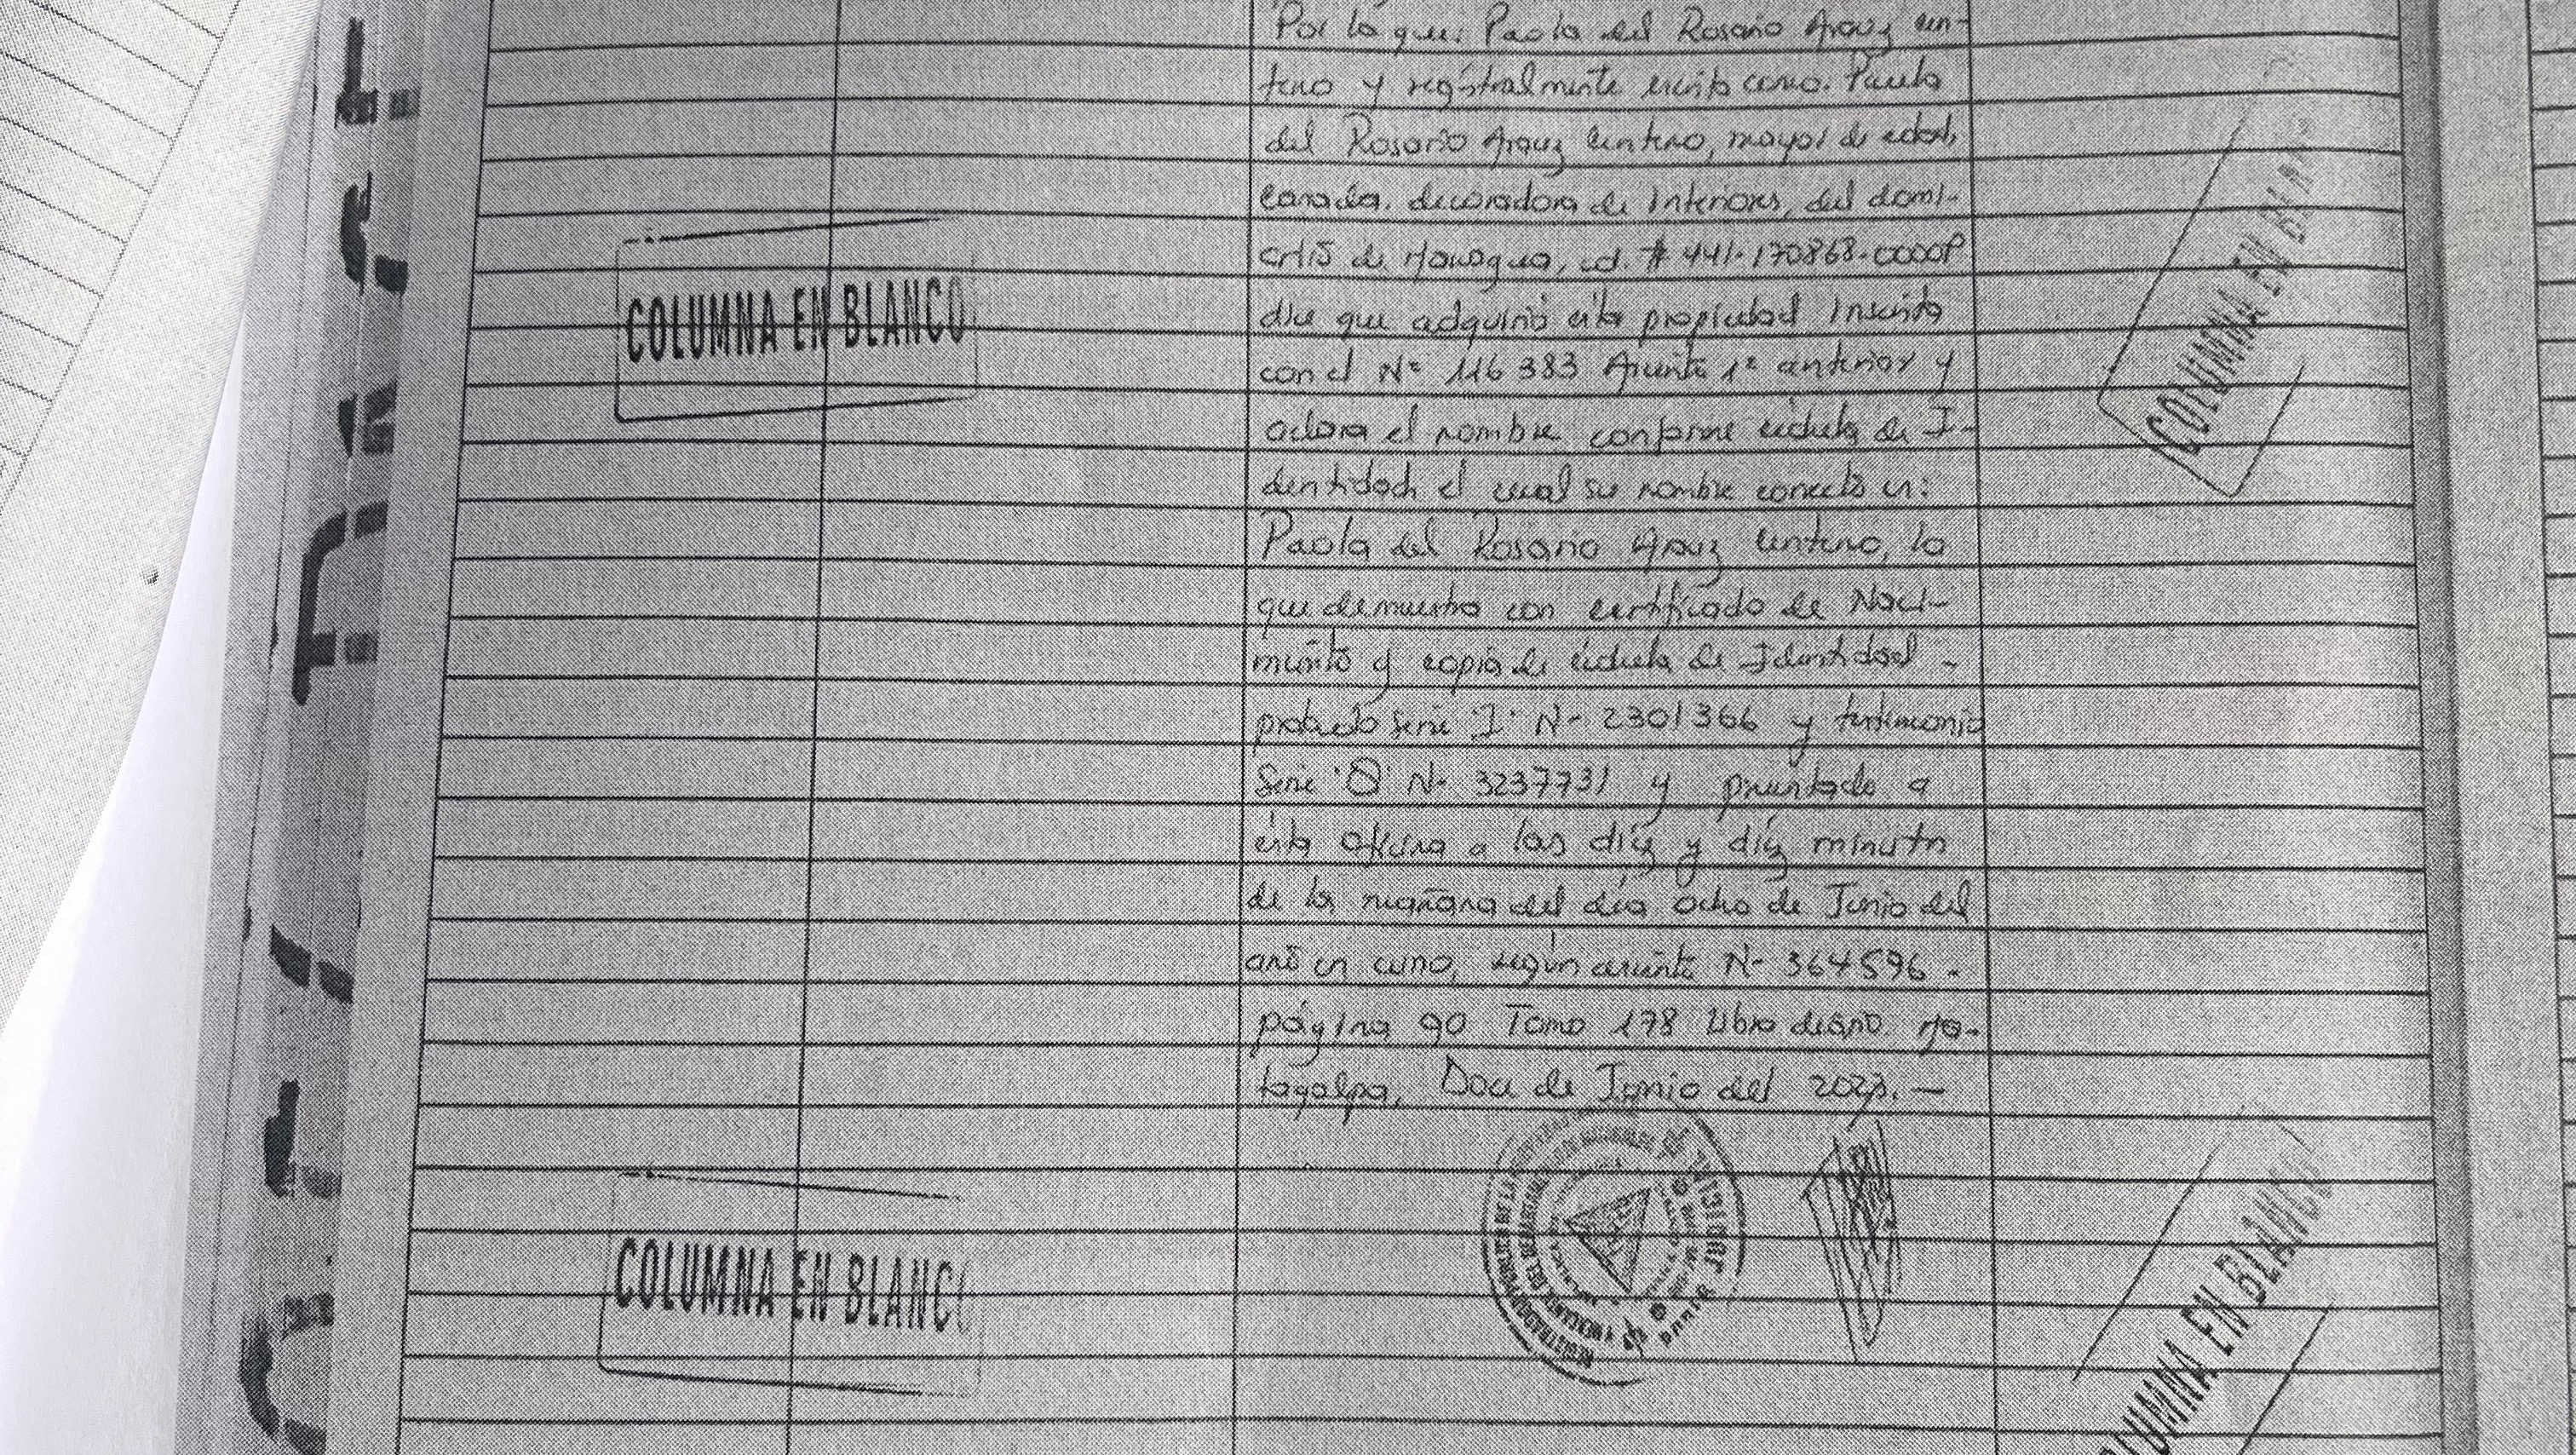 Por lo que: Paola del Rosario Arauz Cen-
teno y registralmente escrito como: Paula
del Rosario Arauz Centeno, mayor de edad,
casada, decoradora de Interiores, del domi-
cilio de Managua, ced. # 441-170868-0000P
dice que adquirió esta propiedad Inscrita
con el Nº 116383 Asiento 1º anterior y
aclara el nombre conforme cédula de I-
dentidad, el cual su nombre correcto es:
Paola del Rosario Arauz Centeno, lo
que demuestra con certificado de Naci-
miento y copia de cédula de Identidad -
protocolo Serie "I" Nº 2301366 y testimonio
Serie "Q" Nº 3237731 y presentado a
esta oficina a las diez y diez minutos
de la mañana del día ocho de Junio del
año en curso, según asiento Nº 364596 -
página 90 Tomo 178 Libro diario. Ma-
tagalpa, Doce de Junio del 2023. —
COLUMNA EN BLANCO
COLUMNA EN BLANCO
COLUMNA EN BLANCO
COLUMNA EN BLANCO